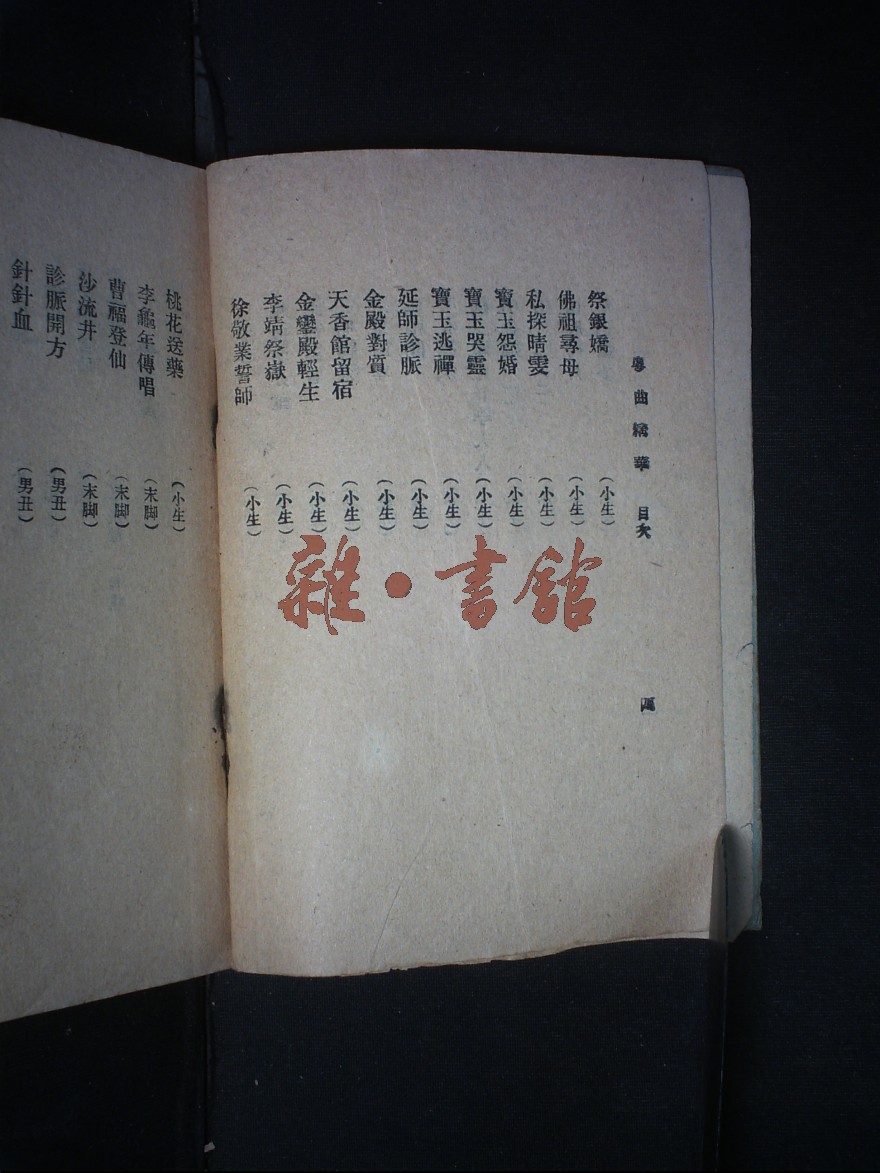 粵曲精華 目次
四
祭銀嬌 (小生)
佛祖尋母 (小生)
私探晴雯 (小生)
寶玉怨婚 (小生)
寶玉哭靈 (小生)
寶玉逃禪 (小生)
延師診脈 (小生)
金殿對質 (小生)
天香館留宿 (小生)
金鑾殿輕生 (小生)
李靖祭嶽 (小生)
徐敬業誓師 (小生)
桃花送藥 (小生)
李龜年傳唱 (末脚)
曹福登仙 (末脚)
沙流井 (末脚)
診脈開方 (男丑)
針針血 (男丑)
雜·書館